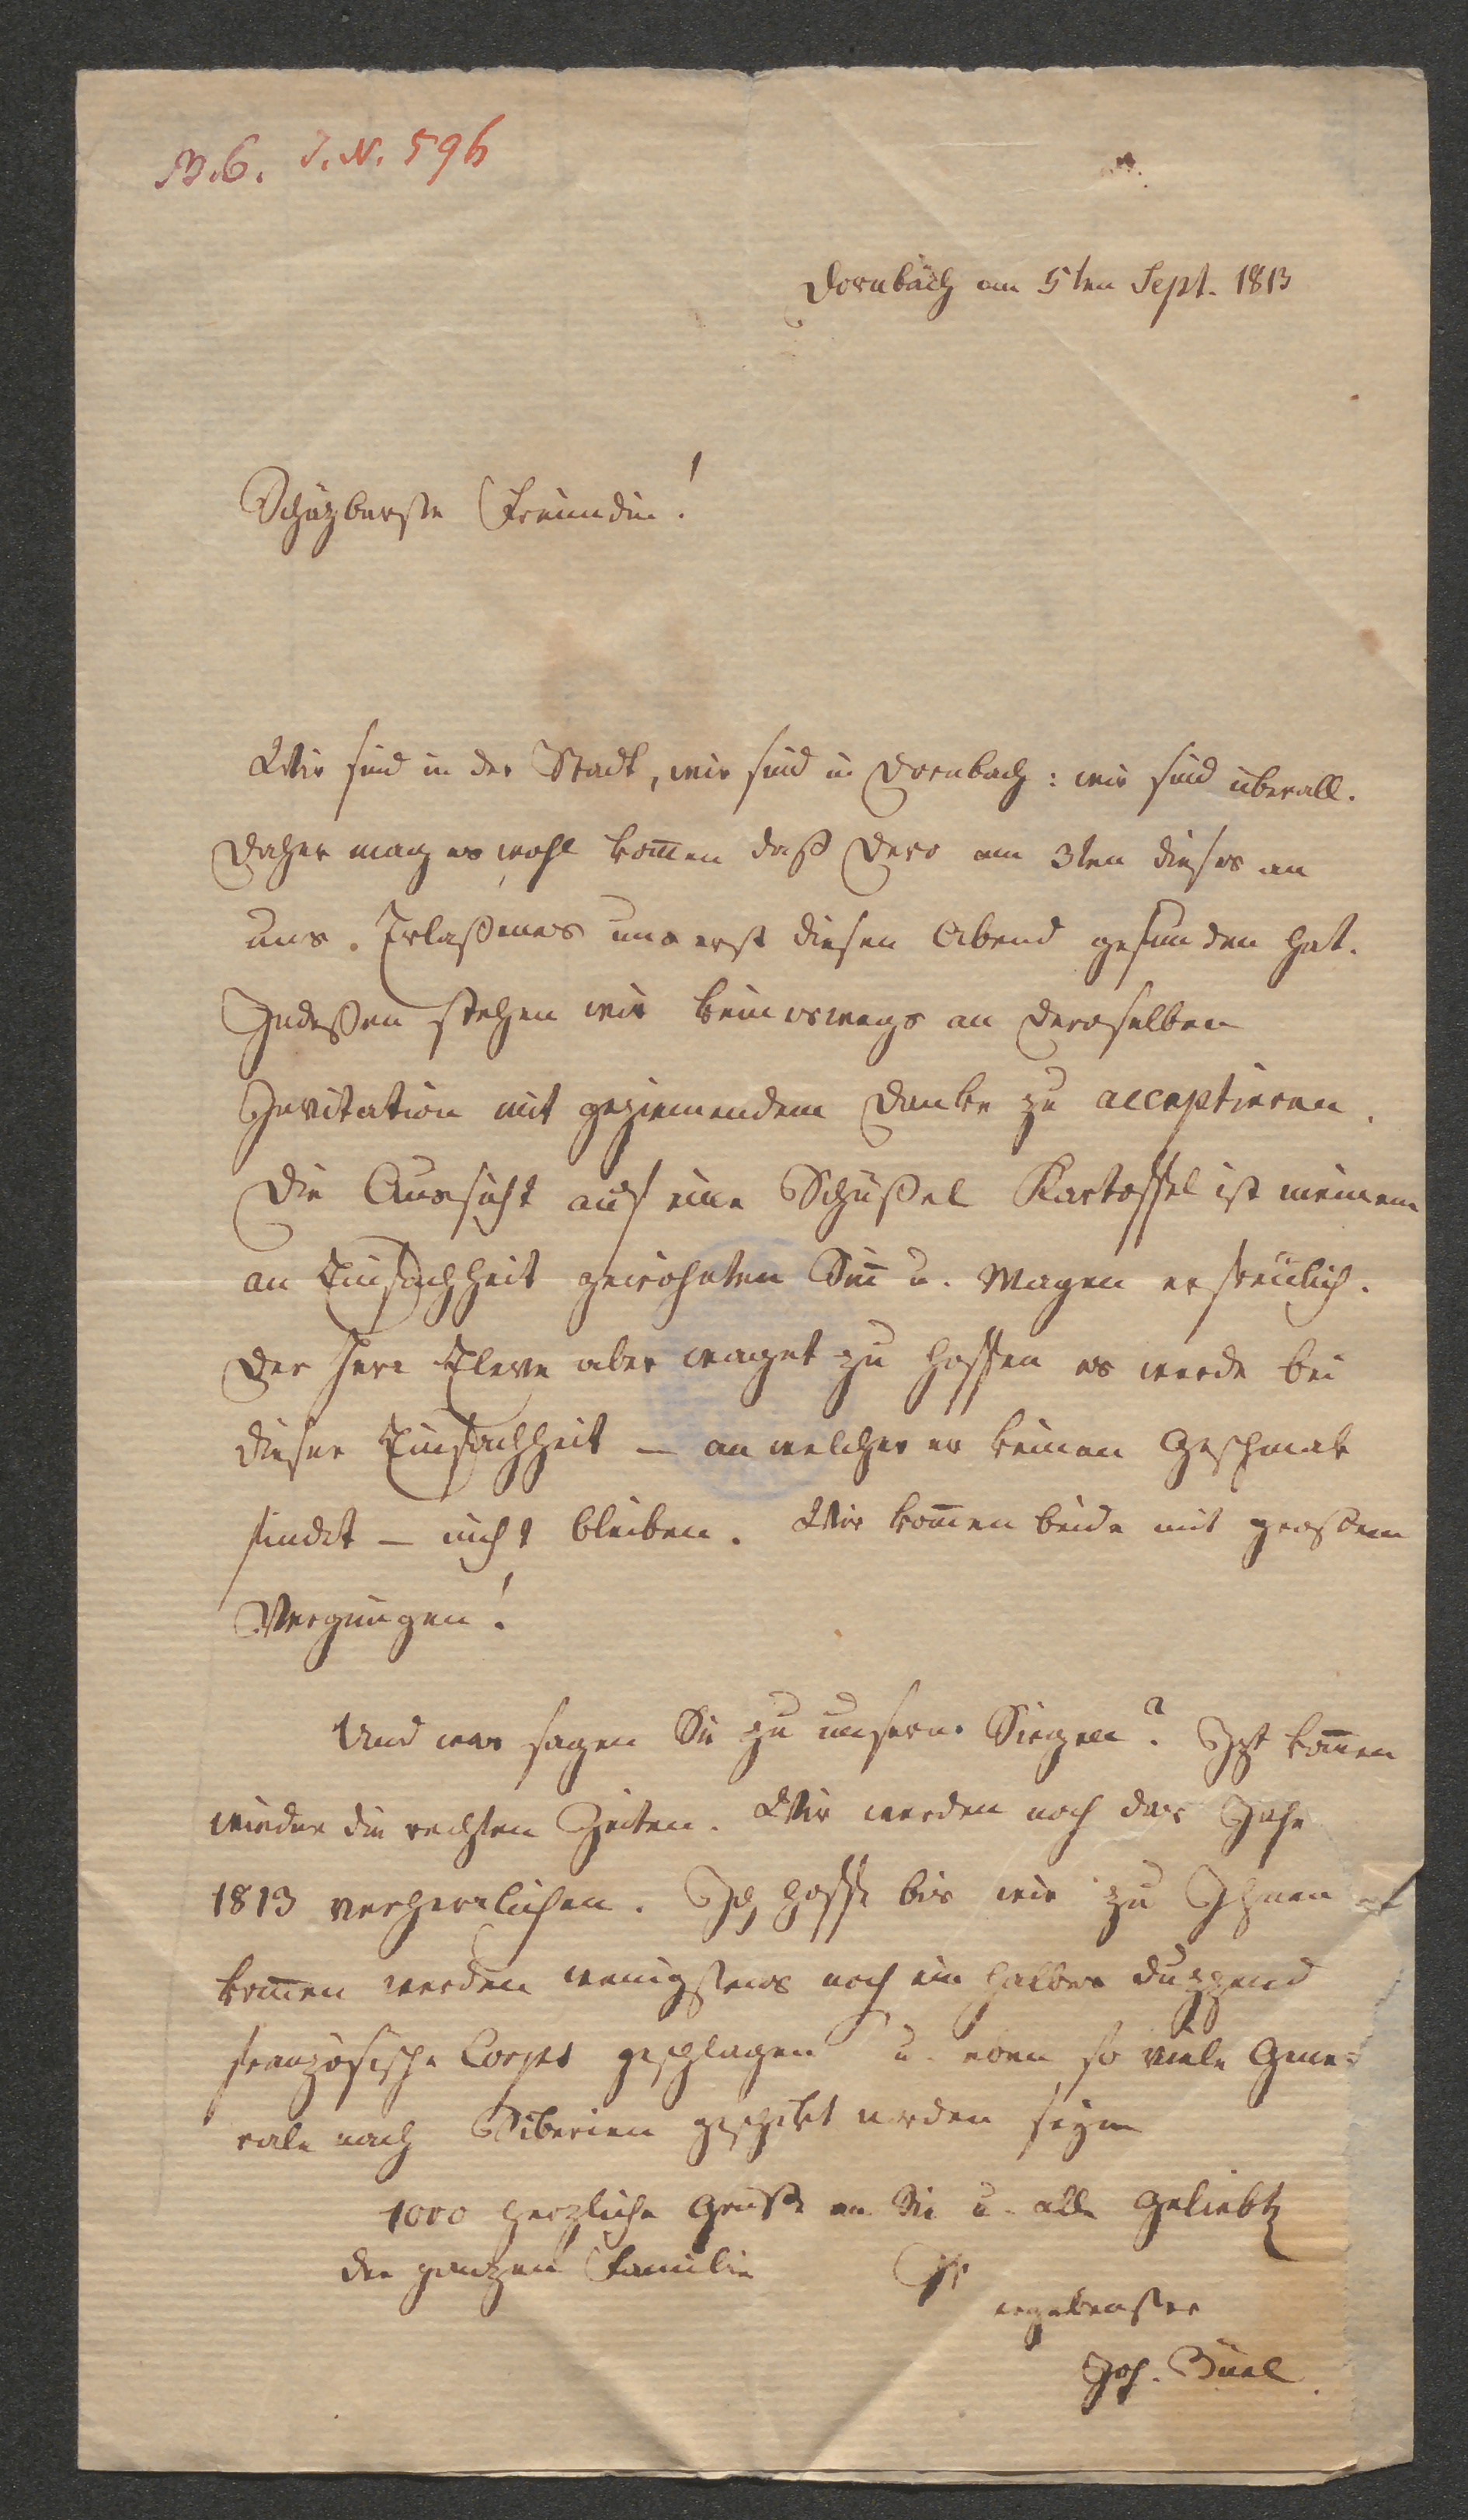 B.6. I.N. 596
Dornbach am 5ten Sept. 1813
Schäzbarste Freundin!
Wir sind in der Stadt, wir sind in Dornbach: wir sind überall.
Daher mag es wohl kom̅en daß Dero am 3ten dieses an
uns Erlaßenes uns erst diesen Abend gefunden hat.
Indeßen stehen wir keineswegs an Deroselben
Invitation mit geziemendem Danke zu acceptieren.
Die Aussicht auf eine Schüßel Kartoffel ist meinem
an Einfachheit gewohnten Sin̅ u. Magen erfreülich.
Der Herr Eleve aber waget zu hoffen es werde bei
dieser Einfachheit – an welcher er keinen Geschmak
findet – nicht bleiben. Wir kom̅en beide mit großem
Vergnügen!
Und was sagen Sie zu unsern Siegen? Izt kom̅en
wieder die rechten Zeiten. Wir werden noch das Jahr
1813 verherrlichen. Ich hoffe bis wir zu Ihnen
kom̅en werden wenigstens noch ein halbes Duzzend
französische Corps geschlagen u. eben so viele Gene=
rale nach Siberien geschikt worden seyn
1000 herzliche Grüße an Sie u. alle Geliebte
der ganzen Familie
Ihr
ergebenster
Joh. Büel.